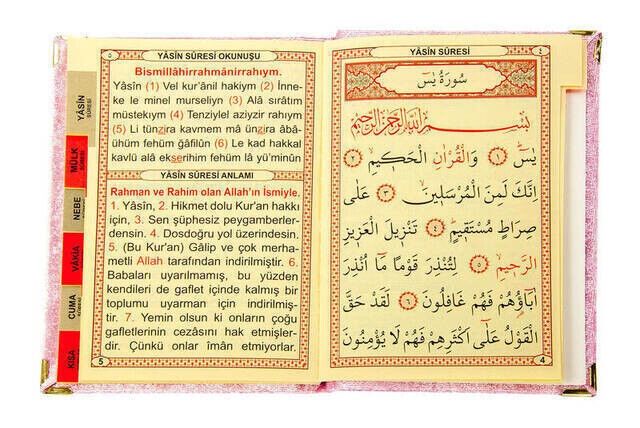 YÂSİN SÛRESİ
٤
سُورَةُ يٰسٓ
بِسْمِ اللّٰهِ الرَّحْمٰنِ الرَّحِيمِ
يٰسٓ ۚ ١ وَالْقُرْاٰنِ الْحَك۪يمِۙ ٢
اِنَّكَ لَمِنَ الْمُرْسَل۪ينَۙ ٣ عَلٰى
صِرَاطٍ مُسْتَق۪يمٍۜ ٤ تَنْز۪يلَ الْعَز۪يزِ
الرَّح۪يمِۙ ٥ لِتُنْذِرَ قَوْمًا مَٓا اُنْذِرَ
اٰبَٓاؤُ۬هُمْ فَهُمْ غَافِلُونَ ٦ لَقَدْ حَقَّ
الْقَوْلُ عَلٰٓى اَكْثَرِهِمْ فَهُمْ لَا يُؤْمِنُونَ
4
٥
YÂSİN SÛRESİ OKUNUŞU
Bismillâhirrahmânirrahıym.
Yâsîn (1) Vel kur'ânil hakiym (2) İnne-
ke le minel murseliyn (3) Alâ sırâtım
müstekıym (4) Tenziylel aziyzir rahıym
(5) Li tünzira kavmem mâ ünzira âbâ-
ühüm fehüm ğâfilûn (6) Le kad hakkal
kavlü alâ ekserihim fehüm lâ yü'minûn
YÂSİN SÛRESİ ANLAMI
Rahman ve Rahim olan Allah'ın İsmiyle.
1. Yâsîn, 2. Hikmet dolu Kur'an hakkı
için, 3. Sen şüphesiz peygamberler-
densin. 4. Dosdoğru yol üzerindesin.
5. (Bu Kur'an) Gâlip ve çok merha-
metli Allah tarafından indirilmiştir. 6.
Babaları uyarılmamış, bu yüzden
kendileri de gaflet içinde kalmış bir
toplumu uyarman için indirilmiş-
tir. 7. Yemin olsun ki onların çoğu
gafletlerinin cezâsını hak etmişler-
dir. Çünkü onlar îmân etmiyorlar.
5
YÂSİN
SÛRESİ
MÜLK
SÛRESİ
NEBE
VÂKIA
CUMA
KISA